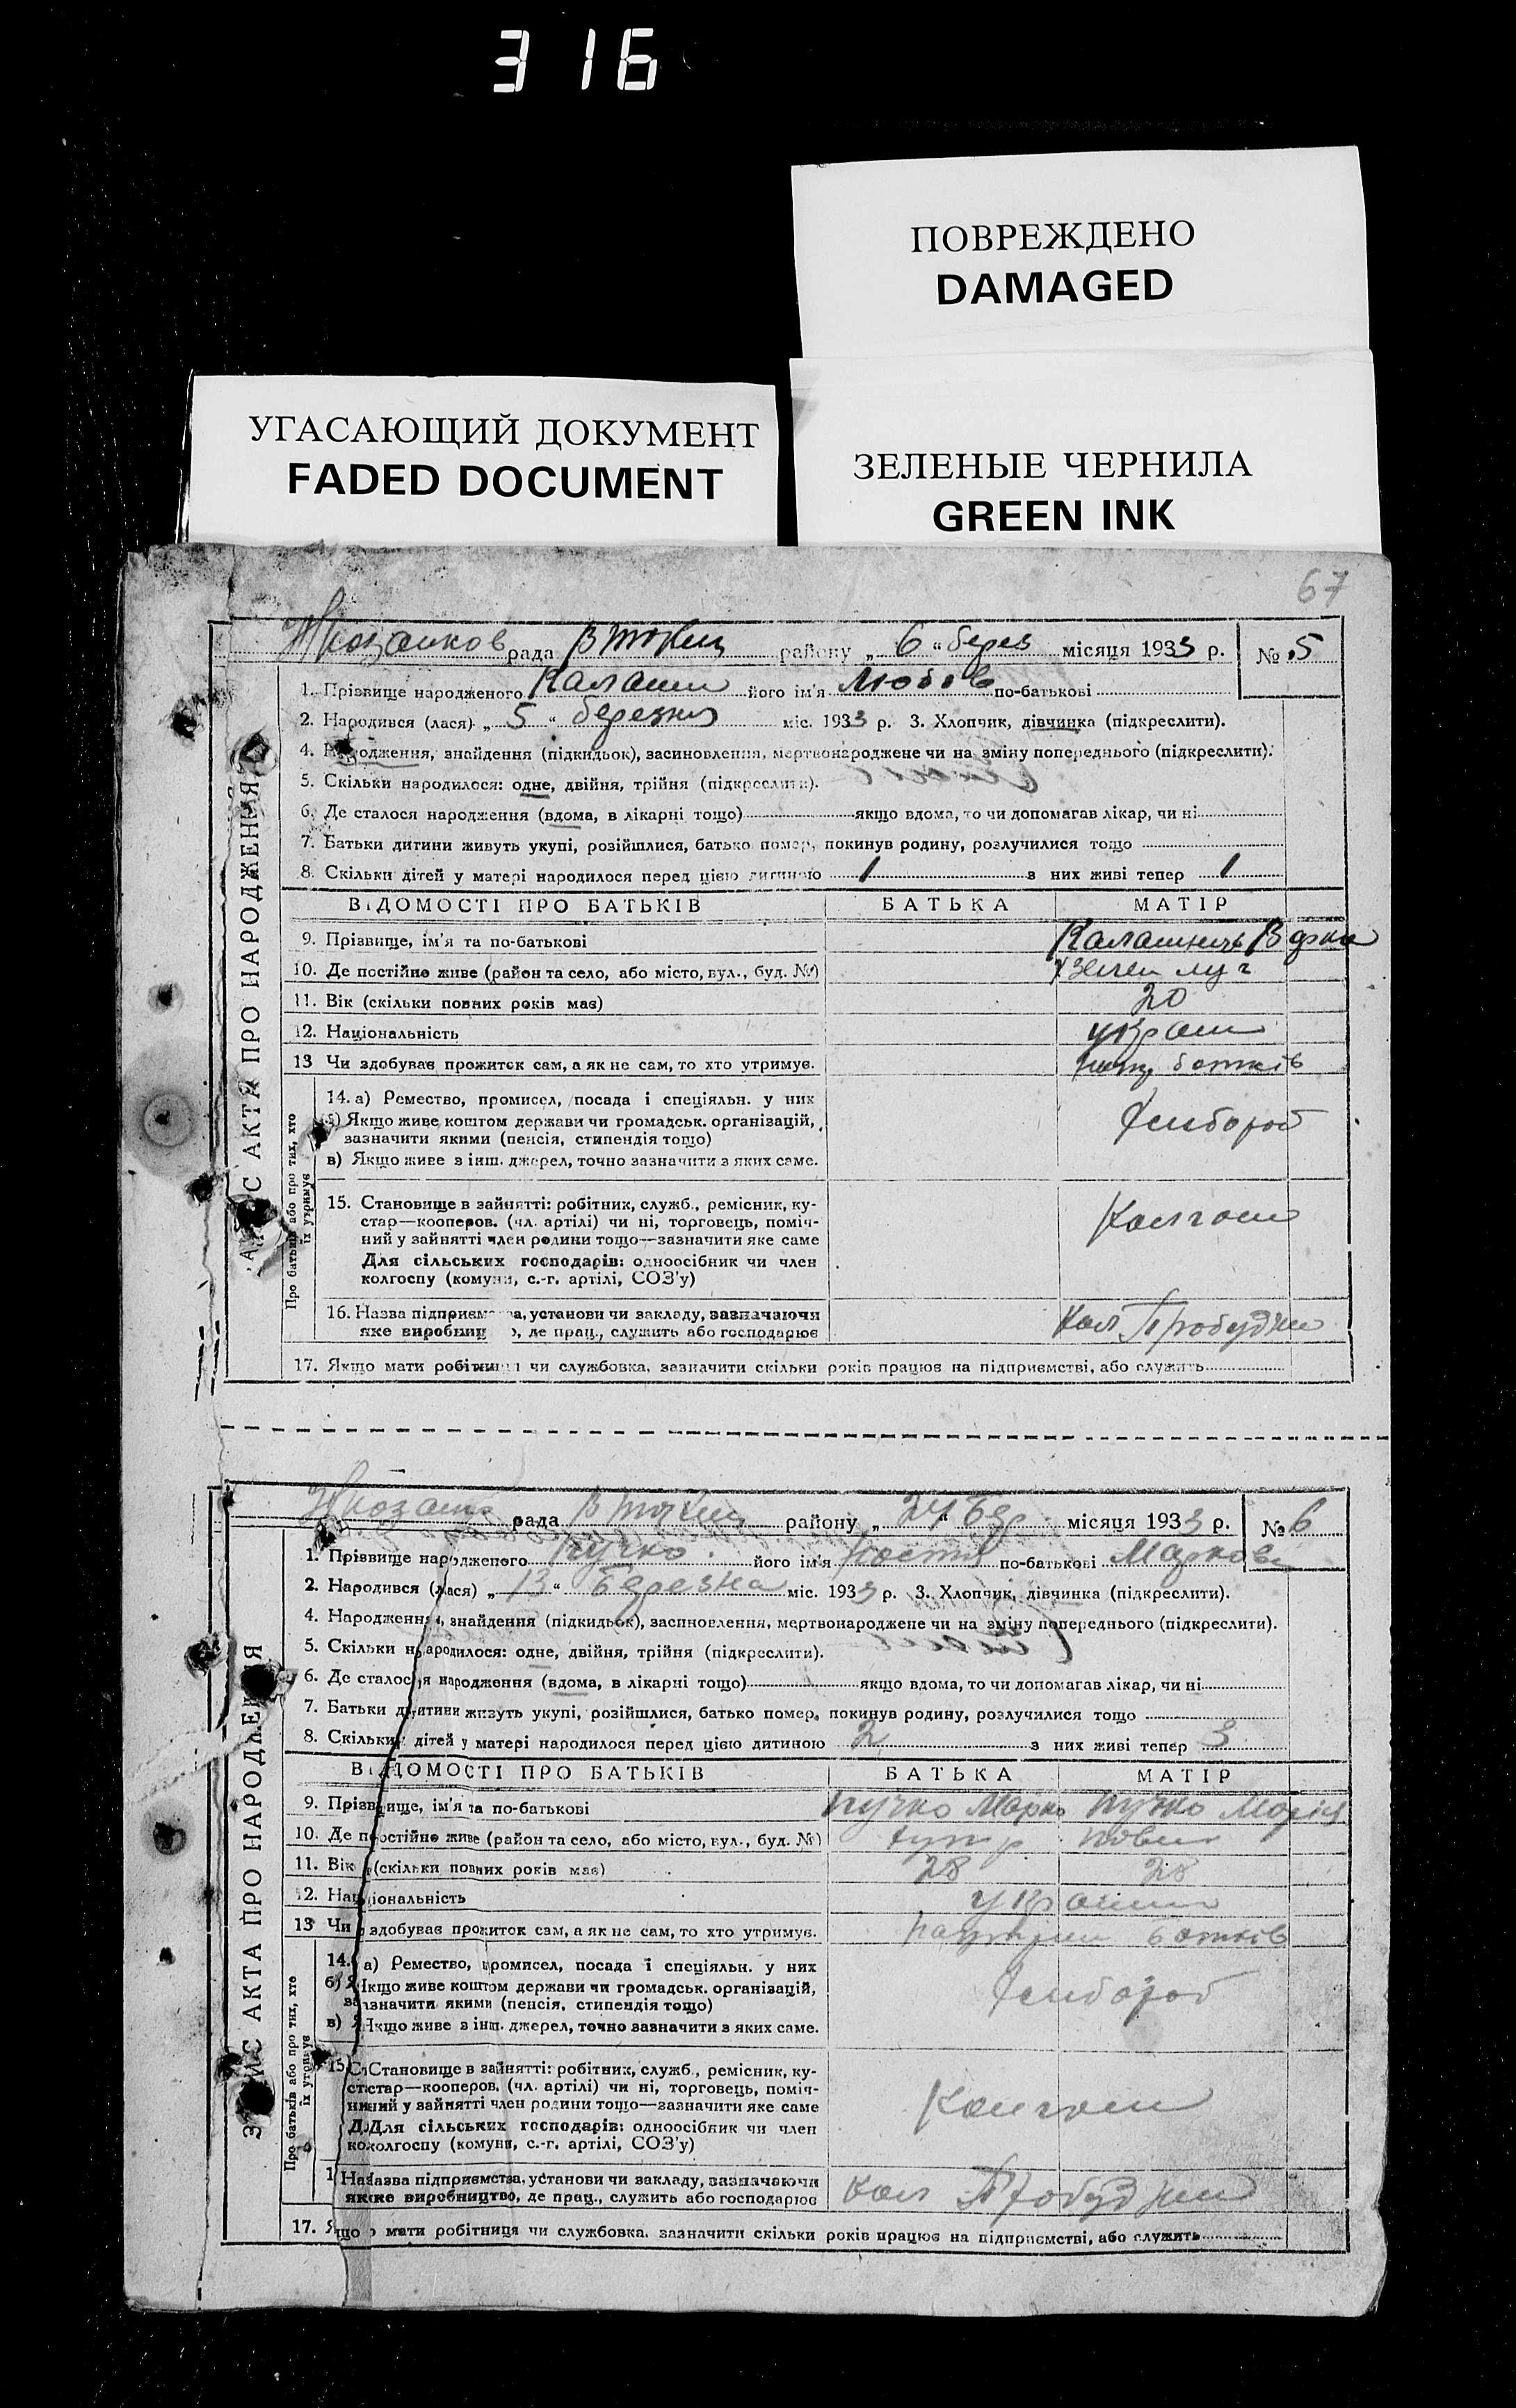 316
ПОВРЕЖДЕНО
DAMAGED
УГАСАЮЩИЙ ДОКУМЕНТ
FADED DOCUMENT
ЗЕЛЕНЫЕ ЧЕРНИЛА
GREEN INK
67
рада району „ 6 “ берез місяця 1933 р. № 5
1. Прізвище народженого Калашн його ім'я Любов по-батькові
2. Народився (лася) „ 5 “ березня міс. 1933 р. 3. Хлопчик, дівчинка (підкреслити).
4. Народження, знайдення (підкидьок), засиновлення, мертвонароджене чи на зміну попереднього (підкреслити).
5. Скільки народилося: одне, двійня, трійня (підкреслити).
6. Де сталося народження (вдома, в лікарні тощо) якщо вдома, то чи допомагав лікар, чи ні
7. Батьки дитини живуть укупі, розійшлися, батько помер, покинув родину, розлучилися тощо
8. Скільки дітей у матері народилося перед цією дитиною 1 з них живі тепер 1
ВІДОМОСТІ ПРО БАТЬКІВ БАТЬКА МАТІР
9. Прізвище, ім'я та по-батькові
10. Де постійно живе (район та село, або місто, вул., буд. №)
11. Вік (скільки повних років має) 20
12. Національність україн
13 Чи здобуває прожиток сам, а як не сам, то хто утримує. батьків
14. а) Ремество, промисел, посада і спеціяльн. у них
б) Якщо живе коштом держави чи громадськ. організацій, зазначити якими (пенсія, стипендія тощо)
в) Якщо живе з інш. джерел, точно зазначити з яких саме.
Хлібороб
15. Становище в зайнятті: робітник, служб., ремісник, ку-
стар—кооперов. (чл. артілі) чи ні, торговець, поміч-
ний у зайнятті член родини тощо—зазначити яке саме
Для сільських господарів: одноосібник чи член
колгоспу (комуни, с.-г. артілі, СОЗ'у)
Колгосп
16. Назва підприємства, установи чи закладу, зазначаючи
яке виробництво, де прац., служить або господарює
17. Якщо мати робітниця чи службовка, зазначити скільки років працює на підприємстві, або служить
ЗАПИС АКТА ПРО НАРОДЖЕННЯ
Про батьків або про тих, хто
їх утримує
рада району „ 24 “ Бер місяця 1933 р. № 6
1. Прізвище народженого Пучко його ім'я по-батькові Марков
2. Народився (лася) „ 13 “ Березня міс. 1933 р. 3. Хлопчик, дівчинка (підкреслити).
4. Народження, знайдення (підкидьок), засиновлення, мертвонароджене чи на зміну попереднього (підкреслити).
5. Скільки народилося: одне, двійня, трійня (підкреслити).
6. Де сталося народження (вдома, в лікарні тощо) якщо вдома, то чи допомагав лікар, чи ні
7. Батьки дитини живуть укупі, розійшлися, батько помер, покинув родину, розлучилися тощо
8. Скільки дітей у матері народилося перед цією дитиною 2 з них живі тепер 3
ВІДОМОСТІ ПРО БАТЬКІВ БАТЬКА МАТІР
9. Прізвище, ім'я та по-батькові Пучко Марко Пучко Марія
10. Де постійно живе (район та село, або місто, вул., буд. №)
11. Вік (скільки повних років має) 28 28
12. Національність
13 Чи здобуває прожиток сам, а як не сам, то хто утримує. батьків
14. а) Ремество, промисел, посада і спеціяльн. у них
б) Якщо живе коштом держави чи громадськ. організацій,
зазначити якими (пенсія, стипендія тощо)
в) Якщо живе з інш. джерел, точно зазначити з яких саме.
Хлібороб
15. Становище в зайнятті: робітник, служб., ремісник, ку-
стар—кооперов. (чл. артілі) чи ні, торговець, поміч-
ний у зайнятті член родини тощо—зазначити яке саме
Для сільських господарів: одноосібник чи член
колгоспу (комуни, с.-г. артілі, СОЗ'у)
Колгосп
Назва підприємства, установи чи закладу, зазначаючи
яке виробництво, де прац., служить або господарює
17. Якщо мати робітниця чи службовка, зазначити скільки років працює на підприємстві, або служить
ЗАПИС АКТА ПРО НАРОДЖЕННЯ
Про батьків або про тих, хто
їх утримує